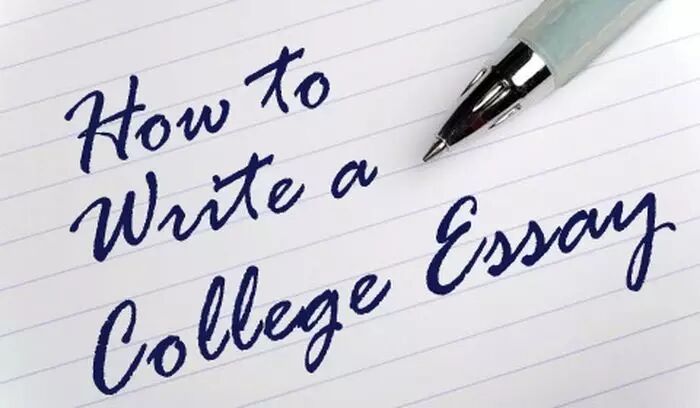 How to
Write a
College Essay